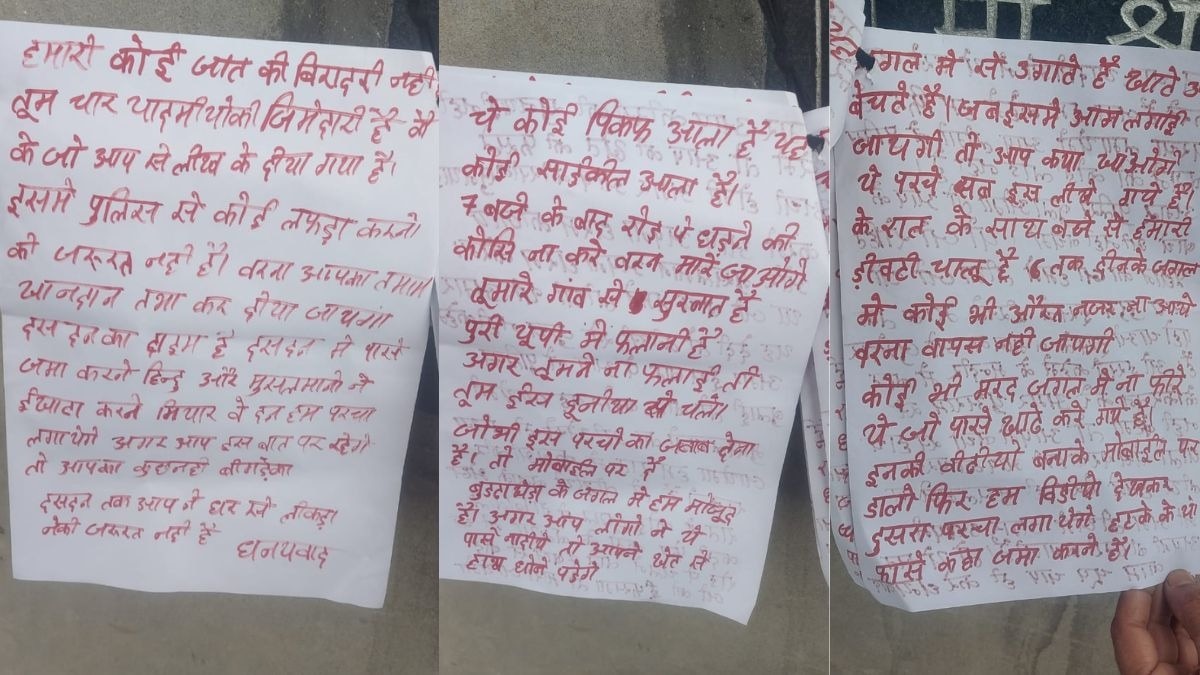 हमारी कोई जात की बिरादरी नही
तूम चार यादमीयोकी जिमेदारी है
के जो आप से लीख के दीया गया है।
इसमे पुलिस से कोई लफड़ा करने
की जरूरत नही है। वरना आपका तमाम
खानदान तभा कर दीया जायगा
दस दन का टाइम है दसदन मे पासे
जमा करने हिन्दु और मुसलमानो ने
ईखाटा करने दन हम परचा
लगायेगे अगर आप इस बात पर रहेगे
तो आपका कुछनही बीगड़ेका
दसदन तक आप ने धर से नीकड़
नेकी जरूरत नही है
धनयवाद
ये कोई पिकफ आला है यह
कोई साईकील आला है।
7 बजे के बाद रोड़ पे चड़ने की
कोसि ना करे वरन मारे जाओगे
तूमारे गांव से सुरूआत है
पुरी यूपी मे फलानी है
अगर तूमने ना फलाई तो
तूम ईस दुनीया से चले।
जोभी इस परचो का जवाब देना
है। तो मोबाईल पर दे
बुडढाखेड़ा के जगल मे हम मोजूद
है। अगर आप लोगो ने ये
पासे नादीये तो आपने खेत से
हाथ धोने पड़ेगे
जगल मे से उगाते है खाते
बेचते है। जब इसमे आग लगाई
जायगी तो आप कया खाओगे
ये परचे सब इस लीखे गये है।
के रात के साथ बजे से हमारी
ड़ीवटी चालू है 6 तक दीनके जगल
मे कोई भी औरत नजर ना आये
वरना वापस नही जायगी
कोई भी मरद जगल मे ना फीरे
ये जो पासे खाटे करे गये है।
इनकी वीडीयो बनाके मोबाईल पर
डालो फिर हम विडीयो देखकर
दुसरा परचा लगा येगे हटके के यो
पासे कहा जमा करने है।